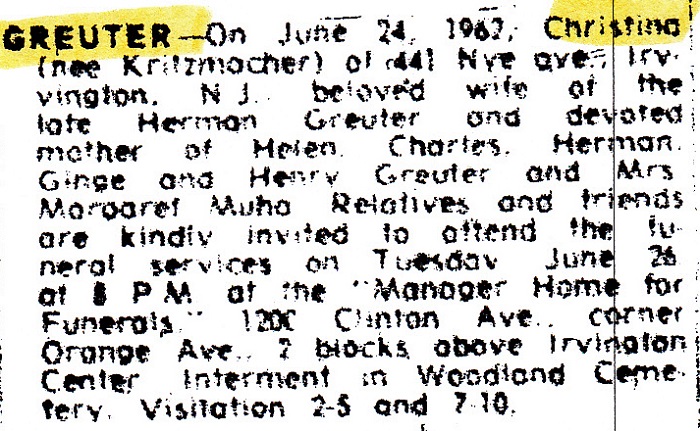 GREUTER—On June 24, 1962, Christina
(nee Kritzmacher) of 441 Nye ave., Irv-
vington, N.J., beloved wife of the
late Herman Greuter and devoted
mother of Helen, Charles, Herman,
Ginge and Henry Greuter and Mrs
Margaret Muha Relatives and friends
are kindly invited to attend the fu-
neral services on Tuesday June 26
at 8 P.M. at the "Manager Home for
Funerals," 1200 Clinton Ave., corner
Orange Ave., 2 blocks above Irvington
Center Interment in Woodland Ceme-
tery. Visitation 2-5 and 7-10.